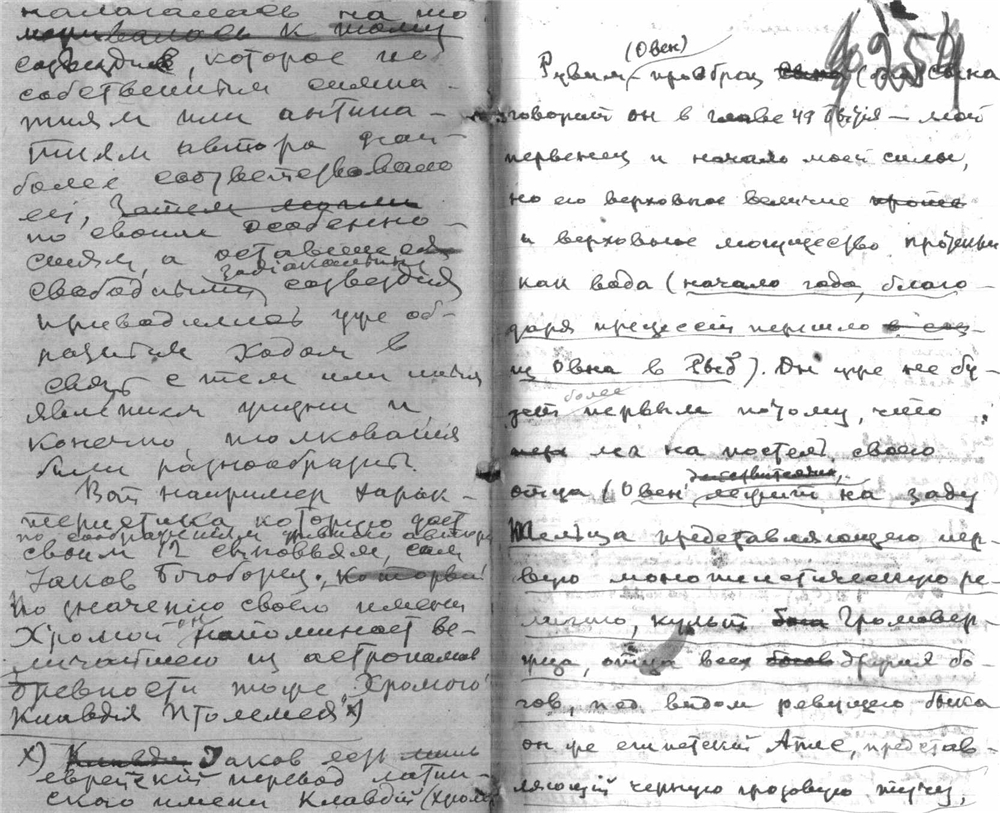 налагалась на то
созвездие, которое по
собственным симпа-
тиям или антипа-
тиям автора наи-
более соответствовало
ей,
по своим особенно-
стям, а оставшееся
зодиакальныя
свободными созвездия
приводились уже об-
ратным ходом в
связь с тем или иным
явлением жизни и,
конечно толкования
были разнообразны.
Вот например харак-
теристика которую дает
по соображениям древнего автора
своим 12 сыновьям, сам
Іаков Богоборец, который
по значению своего имени
Хромой он напоминает ве-
личайшего из астрономов
древности тоже "Хромого"
Клавдія Птолемея х)
х) Клавдій Іаков есть лишь
еврейский перевод латин-
ского имени Клавдій (хром
4254
(Овен)
Рувим прообраз (би) сына
говорит он в главе 49 Бытія — мой
первенец и начало моей силы,
но его верховное величие
и верховное могущество
как вода (начало года, благо-
даря прецессіи перешло в соз
из Овна в Рыб). Он уже не бу-
более
дет первым потому, что
лег на постель своего
действительно,
отца (Овен лежит на заду
Тельца представляющего пер-
вую монотеистическую ре-
лигию, культ бога Громовер-
жца, отца всех богов других бо-
гов, под видом ревущего быка
он же египетский Апис, представ-
ляющій черную грозовую тучу,